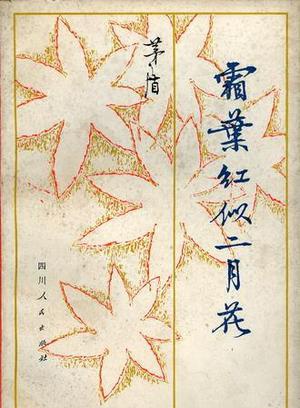 霜葉紅似二月花
茅盾
四川人民出版社